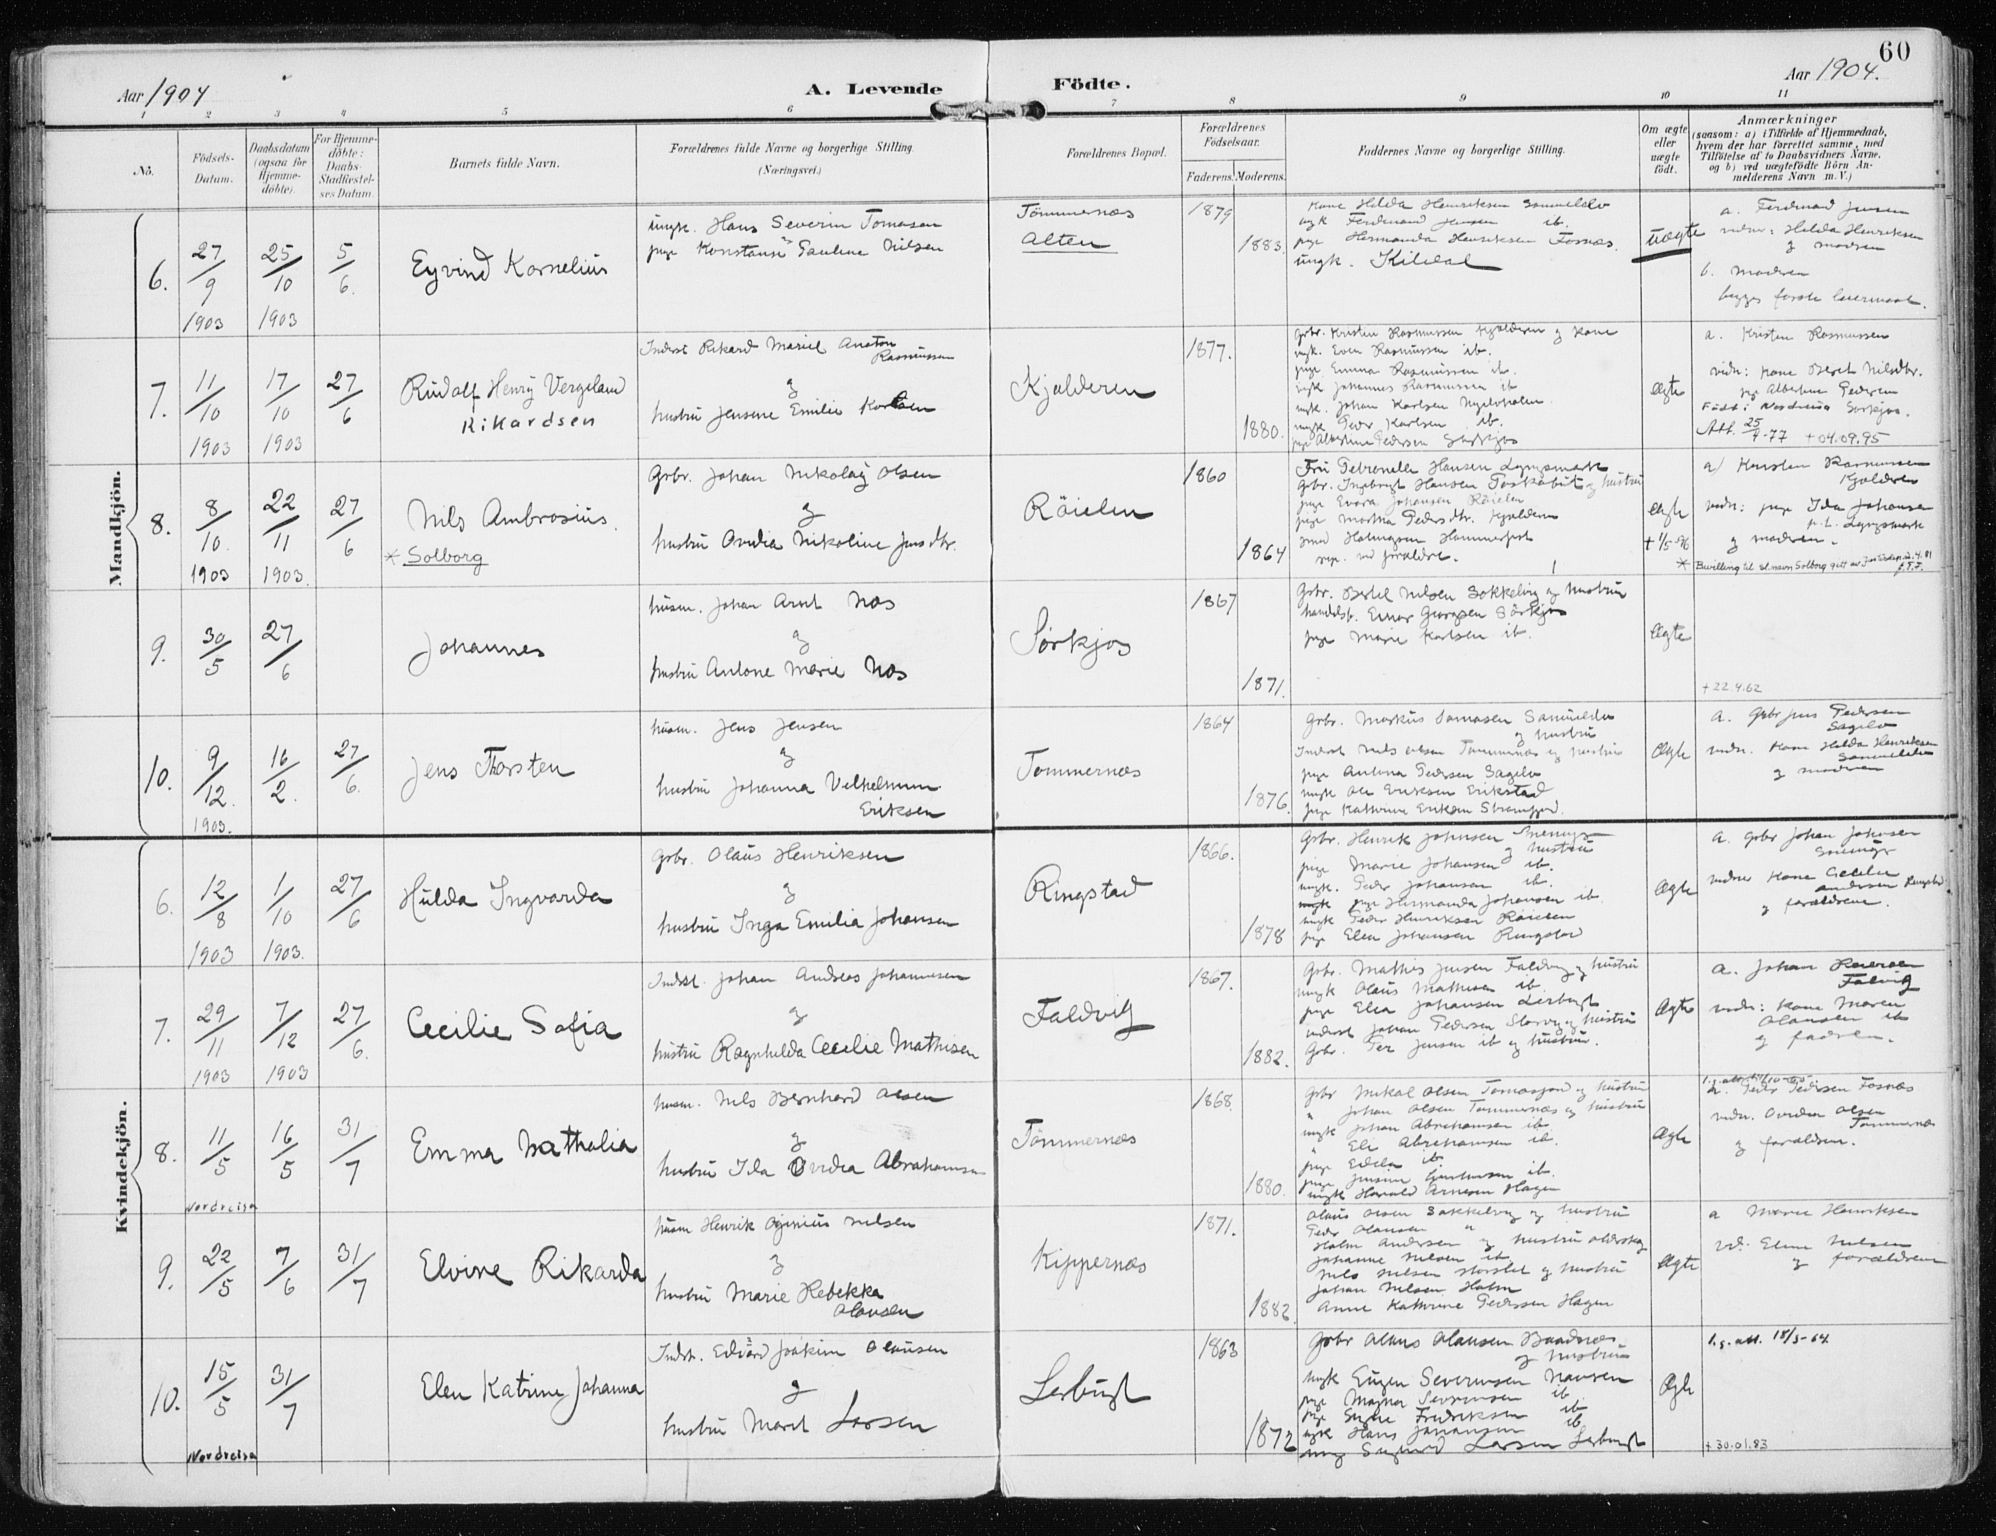 60
Aar 1904
A. Levende Födte.
Aar 1904.
1 2 3 4 5 6 7 8 9 10 11
No.
Födsels-Datum.
Daabsdatum (ogsaa for Hjemme-döbte).
For Hjemme-döbte: Daabs-Stadfæstel-ses Datum.
Barnets fulde Navn.
Forældrenes fulde Navne og borgerlige Stilling.
(Næringsvei.)
Forældrenes Bopæl.
Forældrenes Födselsaar.
Faderens. Moderens.
Faddernes Navne og borgerlige Stilling.
Om ægte eller uægte födt.
Anmærkninger
(saasom: a) i Tilfælde af Hjemmedaab, hvem der har forrettet samme, med Tilföielse af to Daabsvidners Navne, og b) ved uægtefödte Börn An-melderens Navn m.V.)
Mandkjön.
6. 27/9 1903 25/10 1903 5/6
Eyvind Kornelius
ungk. Hans Severin Tomasen
pige Konstanse Pauline Nilsen
Tömmernæs
Alten
1879
1883.
Kone Hilda Henriksen
ugk Ferdinand Jensen ib.
pige Hermanda Henriksen Fosnæs.
ungk. Kildal
uægte
a. Ferdinand Jensen
vidner: Hilda Henriksen
og modren
b. Modren
begges første leiermaal.
7. 11/10 1903 17/10 1903 27/6
Rudolf Henry Vergeland
Rikardsen
Inderst Rikard Mariel Anton
Rasmussen
og
hustru Jensine Emilie Karlsen
Kjelderen
1877.
1880.
Gbr. Kristen Rasmussen Kjelderen og Kone
ungk. Even Rasmussen ib.
pige Emma Rasmussen ib.
ungk Johannes Rasmussen ib
ungk. Johan Karlsen
ungk Peder Karlsen ib.
pige Albertine Pedersen Sørkjos
Ægte
a. Kristen Rasmussen
vidn: Kone Beret Nilsdtr.
pige Albertine Pedersen
Født i Nordreisa Sørkjos.
Att. 25/4-77 +04.09.95
8. 8/10. 1903 22/11 1903. 27/6
Nils Ambrosius.
* Solborg
Gbr. Johan Nikolay Olsen
og
hustru Ovidia Nikoline Jensdtr.
Röielen
1860
1864
Fru Petronelle Hansen Lyngsmark
Gbr. Ingebrigt Hansen og hustru
pige Evara Johansen Röielen
pige Martha Pedersdtr. Kjelderen
Hammerfest
rep. ved foræld​re.
Ægte
*
a) Kristen Rasmussen
Kjelderen
vidn: pige Ida Johansen
Lyngsmark
og modren.
Bevilling til sl.navn Solborg gitt av
9. 30/5 27/6
Johannes
husm. Johan Arnt Næs
og
hustru Antone Marie Næs
Sørkjos
1867
1871.
Gbr. Bertel Nilsen Sokkelvig og hustru
handelsb. Einar Georgsen Sörkjos
pige Marie Karlsen ib.
Ægte
+22.9.62
10. 9/12. 1903. 16/2. 27/6.
Jens Thorsten
husm. Jens Jensen
og
hustru Johanna Vilhelmine
Eriksen
Tommernæs
1864
1876.
Gbr. Markus Tomasen
og hustru
Inderst Nils Olsen Tømmernæs og hustru
pige Antona Pedersen Sagelv
ungk Ole Eriksen Erikstad
pige Kathrine Eriksen Straumfjord
Ægte
a. Gbr Jens Pedersen
Sagelv
vidn. Kone Hilda Henriksen
og modren
Kvindekjön.
6. 12/8 1903 1/10 1903. 27/6
Hulda Ingvarda
Gbr. Olaus Henriksen
og
hustru Inga Emilia Johansen
Ringstad
1866.
1878
Gbr. Henrik Johnsen
og hustru
pige Marie Johansen ib.
ungk. Peder Johansen ib.
pige Hermanda Johansen ib.
ungk Peder Henriksen Röielen
pige Elen Johansen Ringstad
Ægte
a. Gbr Johan Johnsen
vidner Kone Cecilie
Andersen Ringstad
og forældrene.
7. 29/11 1903 7/12 1903 27/6.
Cecilie Sofia
Inderst. Johan Andreas Johannesen
og
hustru Ragnhilda Cecilie Mathisen
Faldvig
1867.
1882.
Gbr. Mathis Jensen Faldvig og hustru
ungk Olaus Mathisen ib
pige Elen Johansen Lerbugt
inderst Johan Pedersen Storvig og hustru
Gbr. Per Jensen ib og hustru.
Ægte
a. Johan
Faldvig
vidn: Kone Maren
Olausen ib
og fadren.
8. 11/5 16/5 31/7
Nordreisa
Emma Nathalia
husm. Nils Bernhard Olsen
og
hustru Ida Ovidia Abrahamsen
Tömmernæs
1868.
1880.
Gbr Mikal Olsen og hustru
" Johan Olsen Tømmernæs og hustru
ungk Johan Abrahamsen ib
" Eli Abrahamsen ib.
pige Edele ib
pige Jensine ib.
ungk Harald Arnesen Hagen
Ægte
a. Peder Pedersen Fosnæs
vidn. Ovidia Olsen
Tömmernæs
og forældren.
9. 22/5 7/6 31/7
Elvine Rikarda
husm Henrik Nilsen
og
hustru Marie Rebekka
Olausen
Kippernæs
1871.
1882
Olaus Olsen Sokkelvig og hustru
Peder Olausen "
Holm Andersen og hustru
Johanne Nilsen ib
Nils Nilsen Storslet og hustru
Johan Nilsen Holm
Anne Kathrine Pedersen Hagen
Ægte
a Marie Henriksen
vd: Eline Nilsen
og forældren
10. 15/5 31/7
Nordreisa
Elen Katrine Johanna
Inderst. Edvard Joakim Olausen
og
hustru Marit Larsen
Lerbugt
1863
1872
Gbr Olaus Olausen Baadnæs
og hustru
ungk Eugen Severinsen Hansen
pige Magna Severinsen ib
pige Signe Fredriksen ib
ugk Hans Johansen ib
ung Sigurd Larsen Lerbugt
Ægte
l.g. att. 18/5-64
+30.01.83